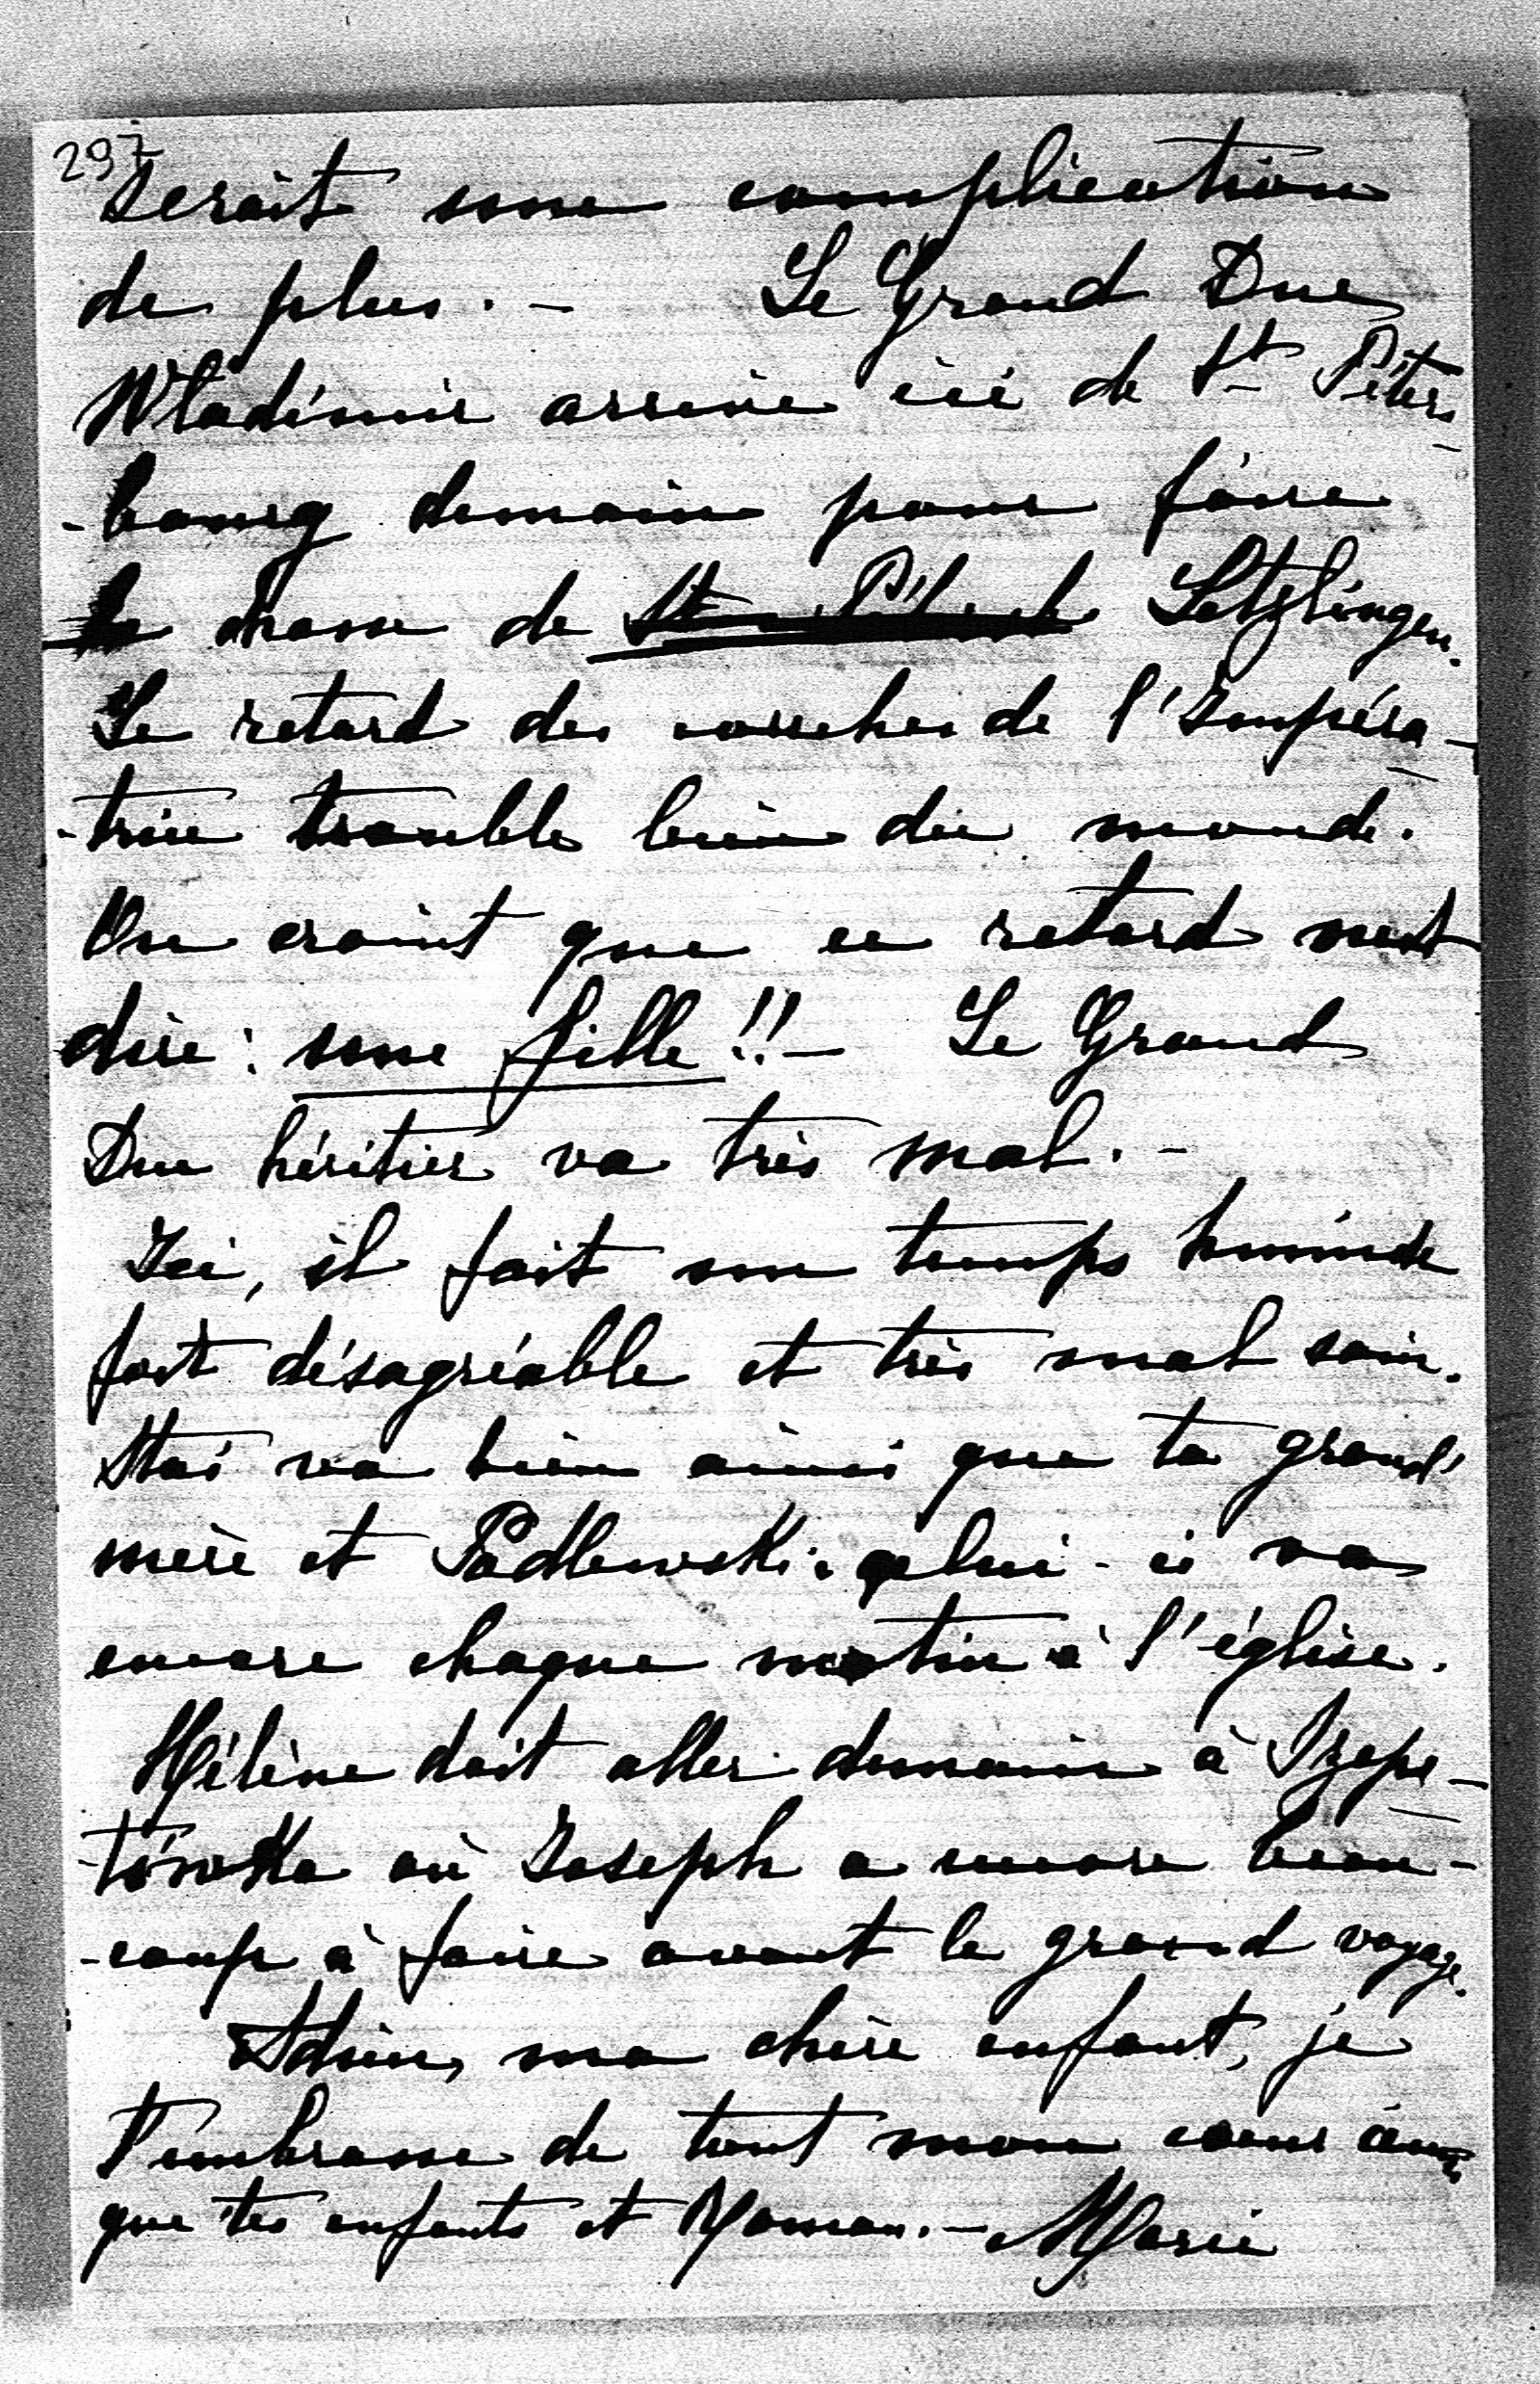 297
serait une complication
de plus. — Le Grand Duc
Wladimir arrive ici de St Péters-
-bourg demain pour faire
la chasse de Letzlingen.
Le retard des couches de l'Impéra-
-trice trouble bien du monde.
On craint que ce retard veut
dire : une fille !! — Le Grand
Duc héritier va très mal. —
Ici, il fait un temps humide
fort désagréable et très mal sain.
Stas va bien ainsi que ta grand'
mère et Padlewski ; celui-ci va
encore chaque matin à l'église.
Hélène doit aller demain à Szepe-
-tówka où Joseph a encore beau-
-coup à faire avant le grand voyage.
Adieu, ma chère enfant, je
t'embrasse de tout mon cœur ainsi
que tes enfants et Roman. — Marie